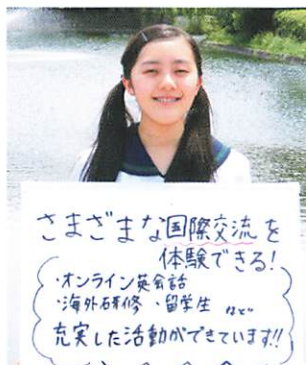 さまざまな国際交流を
体験できる!
・オンライン英会話
・海外研修 ・留学生 など
充実した活動ができています!!